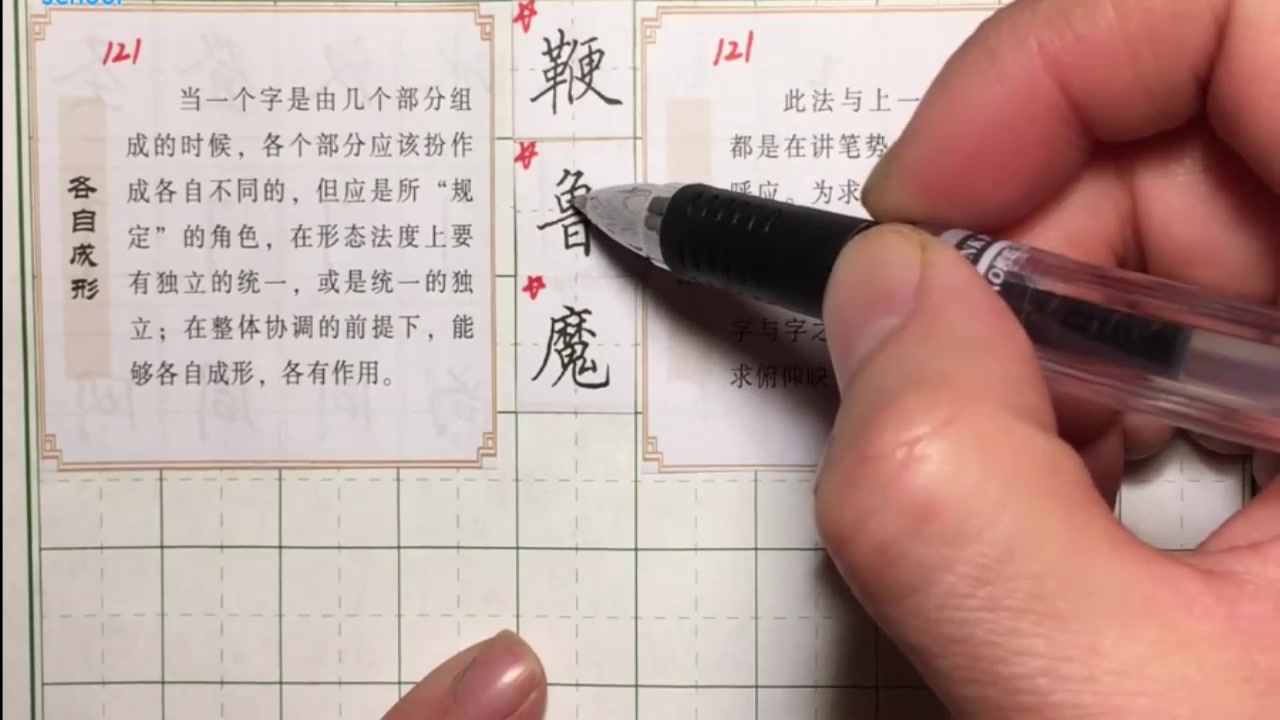 121
各自成形
当一个字是由几个部分组
成的时候，各个部分应该扮作
成各自不同的，但应是所“规
定”的角色，在形态法度上要
有独立的统一，或是统一的独
立；在整体协调的前提下，能
够各自成形，各有作用。
鞭
魯
魔
121
此法与上一
都是在讲笔势
呼应。为求
字与字之
求俯仰映